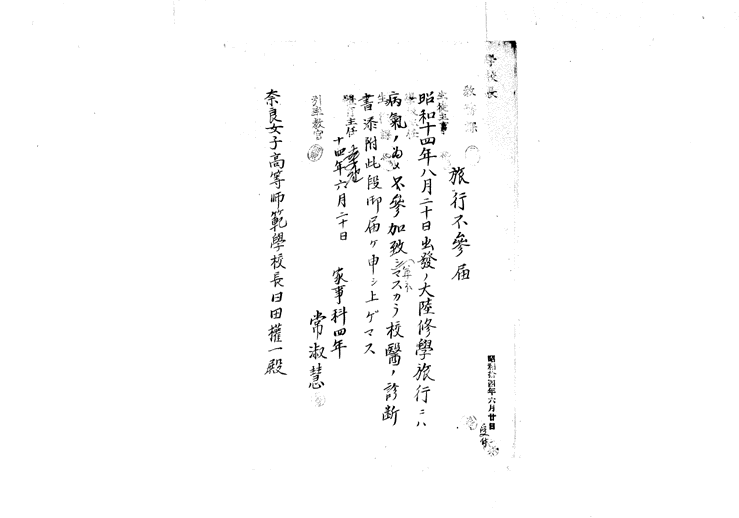 學校長
教務課
生徒主事
旅行不參届
昭和十四年八月二十日出發ノ大陸修學旅行ニハ
病氣ノ為メ不參加致シマスカラ校醫ノ診断
書添附此段御届ケ申シ上ゲマス
主任
十四年六月二十日
引率教官
家事科四年
常淑慧
奈良女子高等師範學校長日田權一殿
昭和拾四年六月廿日
受付